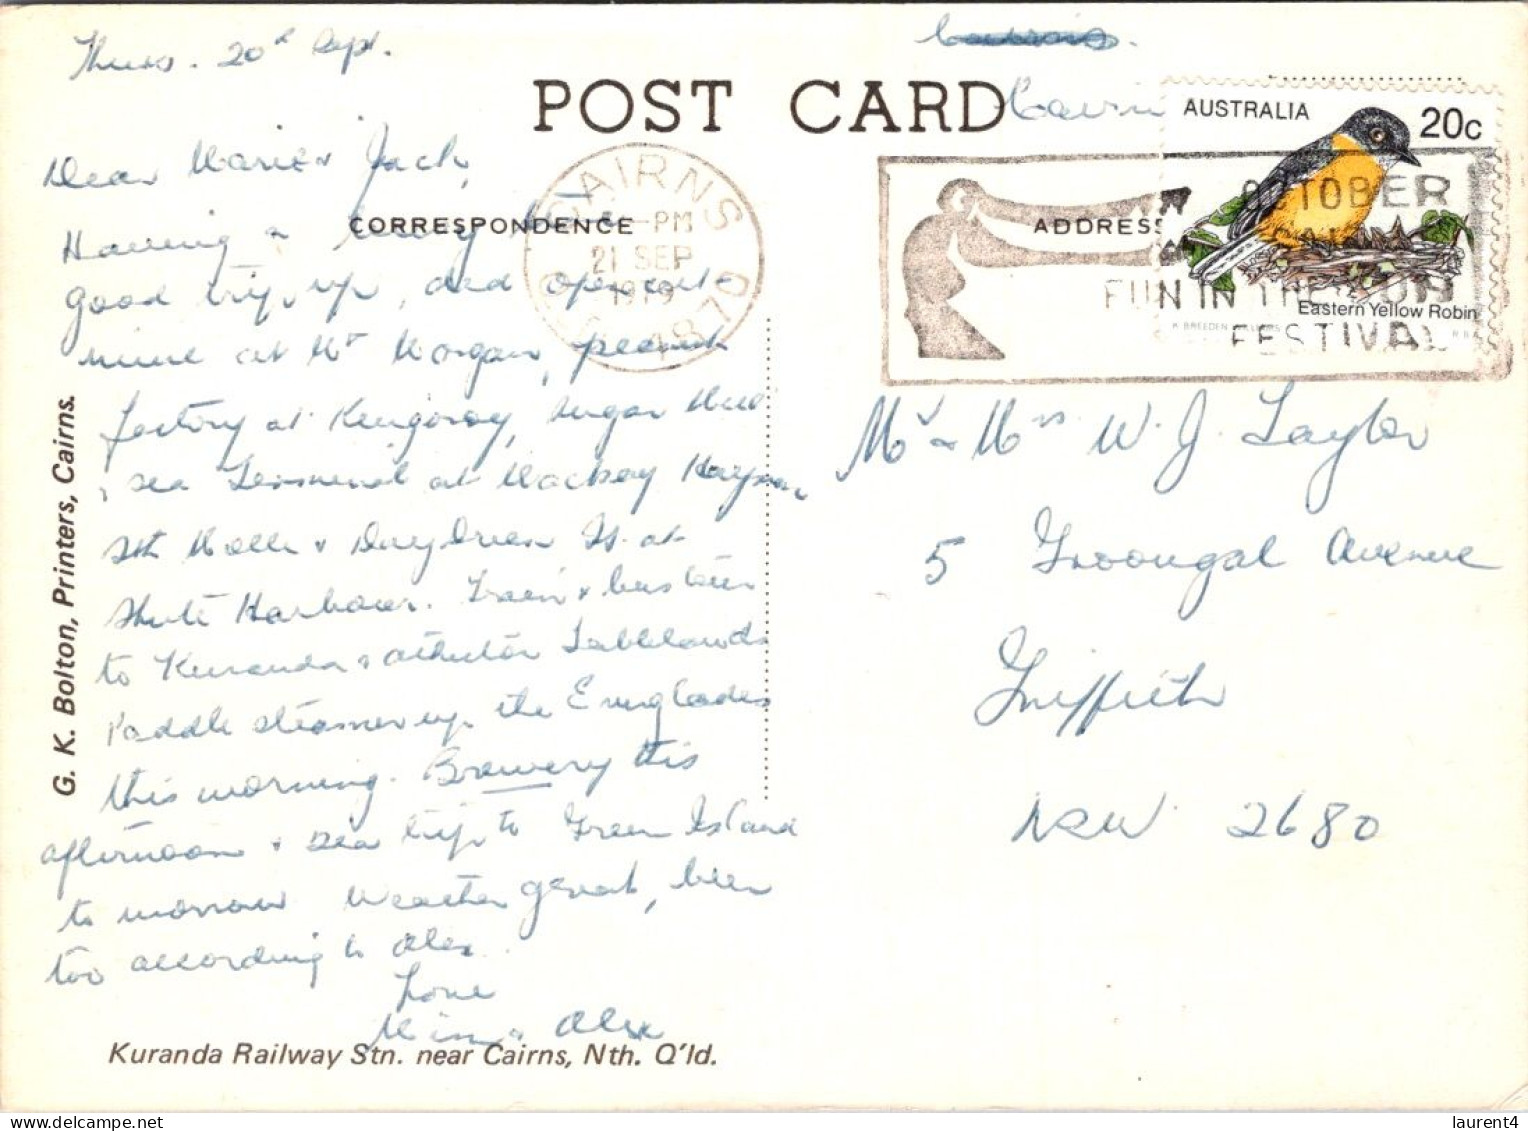 Thurs. 20th Sept.
Cairns.
POST CARD
Cairn
AUSTRALIA
20c
Eastern Yellow Robin
CAIRNS
PM
21 SEP
1979
QLD 4870
OCTOBER
FUN IN THE SUN
FESTIVAL
CORRESPONDENCE
ADDRESS
Dear Marie & Jack,
Having a lovely
good trip up, and open cut
mine at Mt Morgan, peanut
factory at Kingaroy, sugar Mill
& sea Terminal at Mackay Hayman,
Sth Molle & Daydream Is. at
Shute Harbour. Train & bus tour
to Kuranda & Atherton Tablelands
Paddle steamer up the Everglades
this morning. Brewery this
afternoon & sea trip to Green Island
to morrow Weather great, beer
too according to Alex.
Love
& Alex
Mr & Mrs W. J. Taylor
5 Groongal Avenue
Griffith
NSW 2680
G. K. Bolton, Printers, Cairns.
Kuranda Railway Stn. near Cairns, Nth. Q'ld.
laurent4